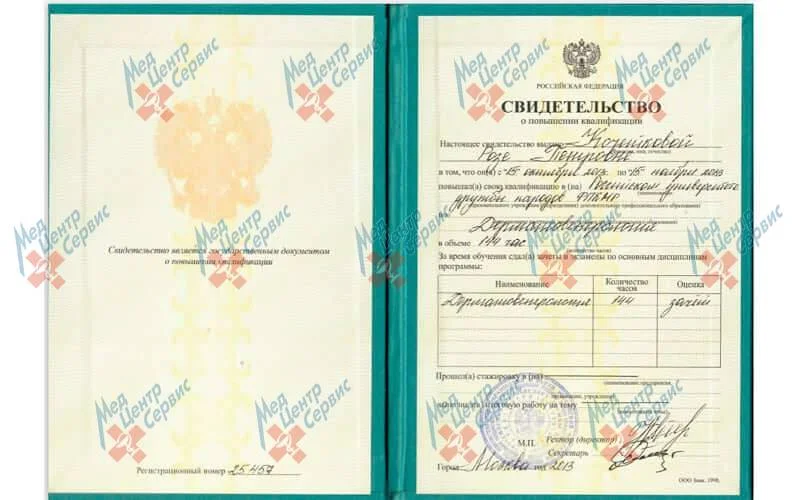 Свидетельство является государственным документом
о повышении квалификации
Регистрационный номер 25457
РОССИЙСКАЯ ФЕДЕРАЦИЯ
СВИДЕТЕЛЬСТВО
о повышении квалификации
Настоящее свидетельство выдано
Розе
в том, что он(а) с 15 октября 2013 по 15 ноября 2013
повышал(а) свою квалификацию в (на) Российском университете
дружбы народов
Дерматовенерология
в объеме 144 час
За время обучения сдал(а) зачеты и экзамены по основным дисциплинам
программы:
Наименование Количество часов Оценка
Дерматовенерология 144 зачёт
Прошел(а) стажировку в (на)
(наименование предприятия,
организации, учреждения)
выполнил(а) итоговую работу на тему
М.П.
Ректор (директор)
Секретарь
Город Москва год 2013
Мед Центр Сервис